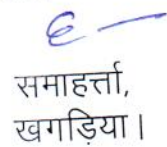 समाहर्त्ता,
खगड़िया।